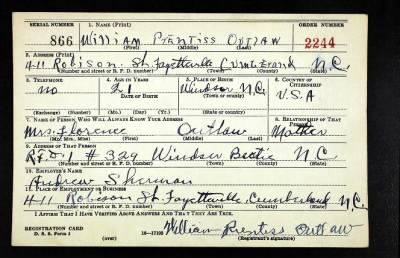 SERIAL NUMBER 1. NAME (Print) ORDER NUMBER
866 William Prentiss Outlaw 2244
(First) (Middle) (Last)
2. ADDRESS (Print)
411 Robison St. Fayetteville Cumberland N.C.
(Number and street or R. F. D. number) (Town) (County) (State)
3. TELEPHONE 4. AGE IN YEARS 5. PLACE OF BIRTH 6. COUNTRY OF CITIZENSHIP
no 21 Windsor N.C. U.S.A
DATE OF BIRTH
(Exchange) (Number) (Mo.) (Day) (Yr.) (Town or county) (State or country)
7. NAME OF PERSON WHO WILL ALWAYS KNOW YOUR ADDRESS 8. RELATIONSHIP OF THAT PERSON
Mrs. Florence Outlaw Mother
(Mr., Mrs., Miss) (First) (Middle) (Last)
9. ADDRESS OF THAT PERSON
R.F.D. 1 # 329 Windsor Bertie N.C.
(Number and street or R. F. D. number) (Town) (County) (State)
10. EMPLOYER'S NAME
Andrew Sherman
11. PLACE OF EMPLOYMENT OR BUSINESS
411 Robison St. Fayetteville, Cumberland N.C.
(Number and street or R. F. D. number) (Town) (County) (State)
I AFFIRM THAT I HAVE VERIFIED ABOVE ANSWERS AND THAT THEY ARE TRUE.
REGISTRATION CARD
D. S. S. Form 1 (over) 16—17105 William Prentiss Outlaw
(Registrant's signature)